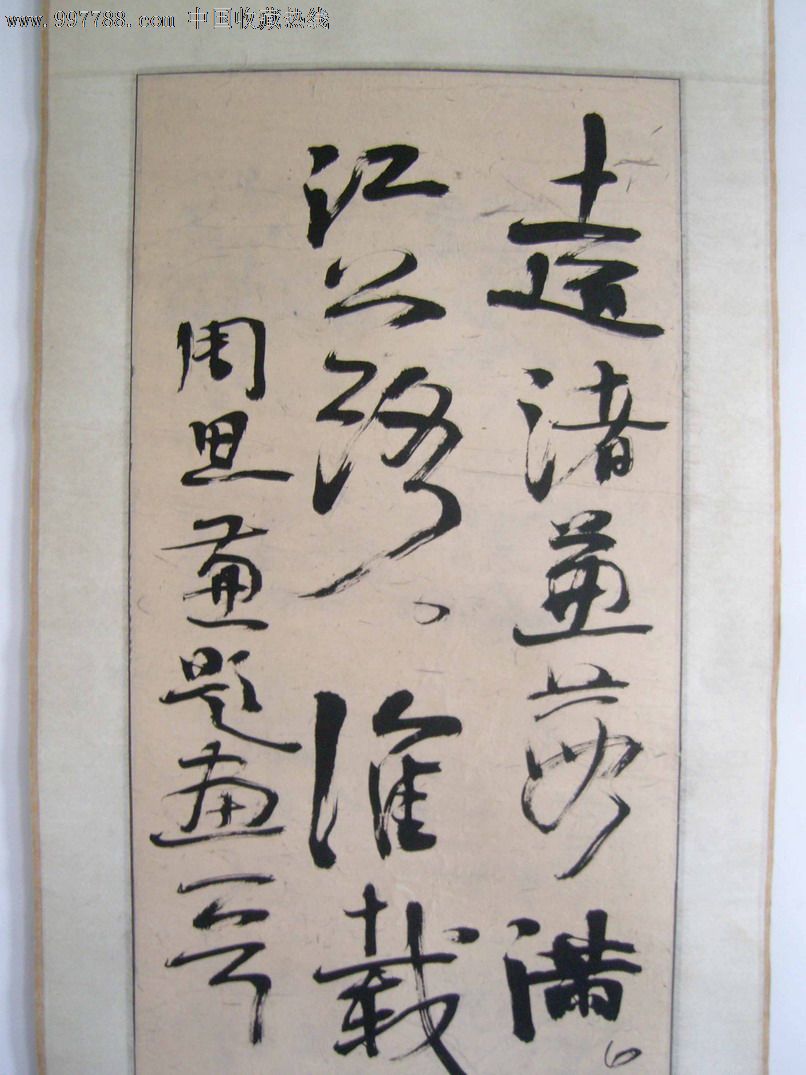 www.997788.com 中国收藏热线
遠渚蒹葭滿
江 誰載
周思兼題畫